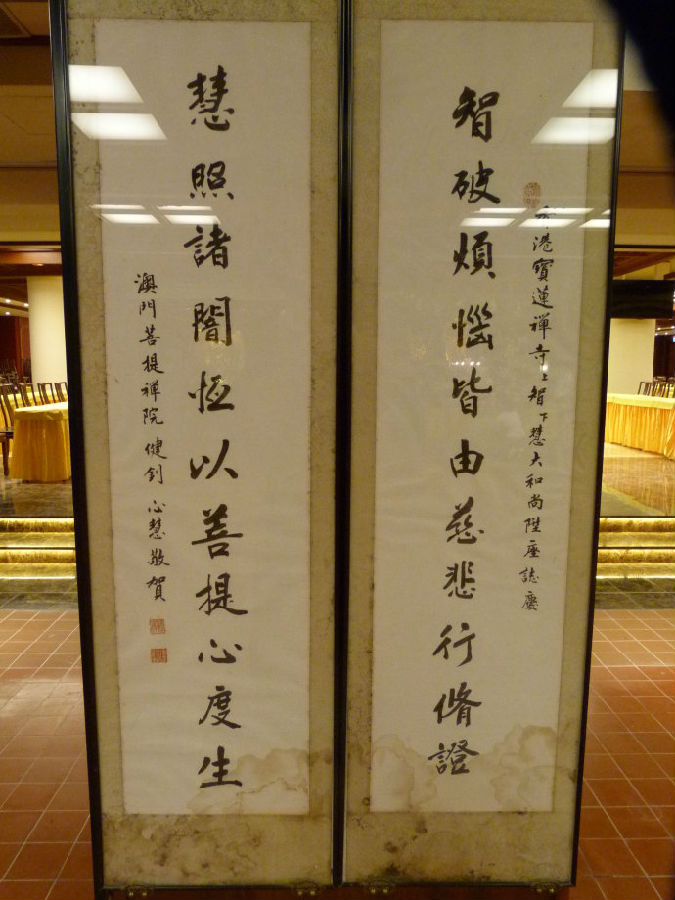 香港寶蓮禪寺上智下慧大和尚陞座誌慶
智破煩惱皆由慈悲行脩證
慧照諸闇恆以菩提心度生
澳門菩提禪院健釗心慧敬賀